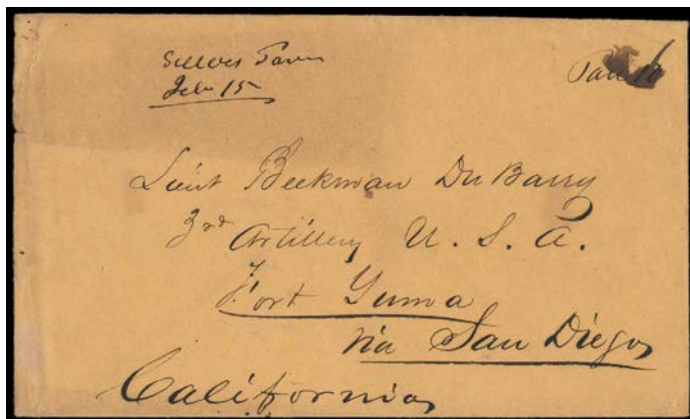 Sellers Tavern
Feb 15
Paid 10
Lieut Beekman Du Barry
3rd Artillery U. S. A.
Fort Yuma
via San Diego
California